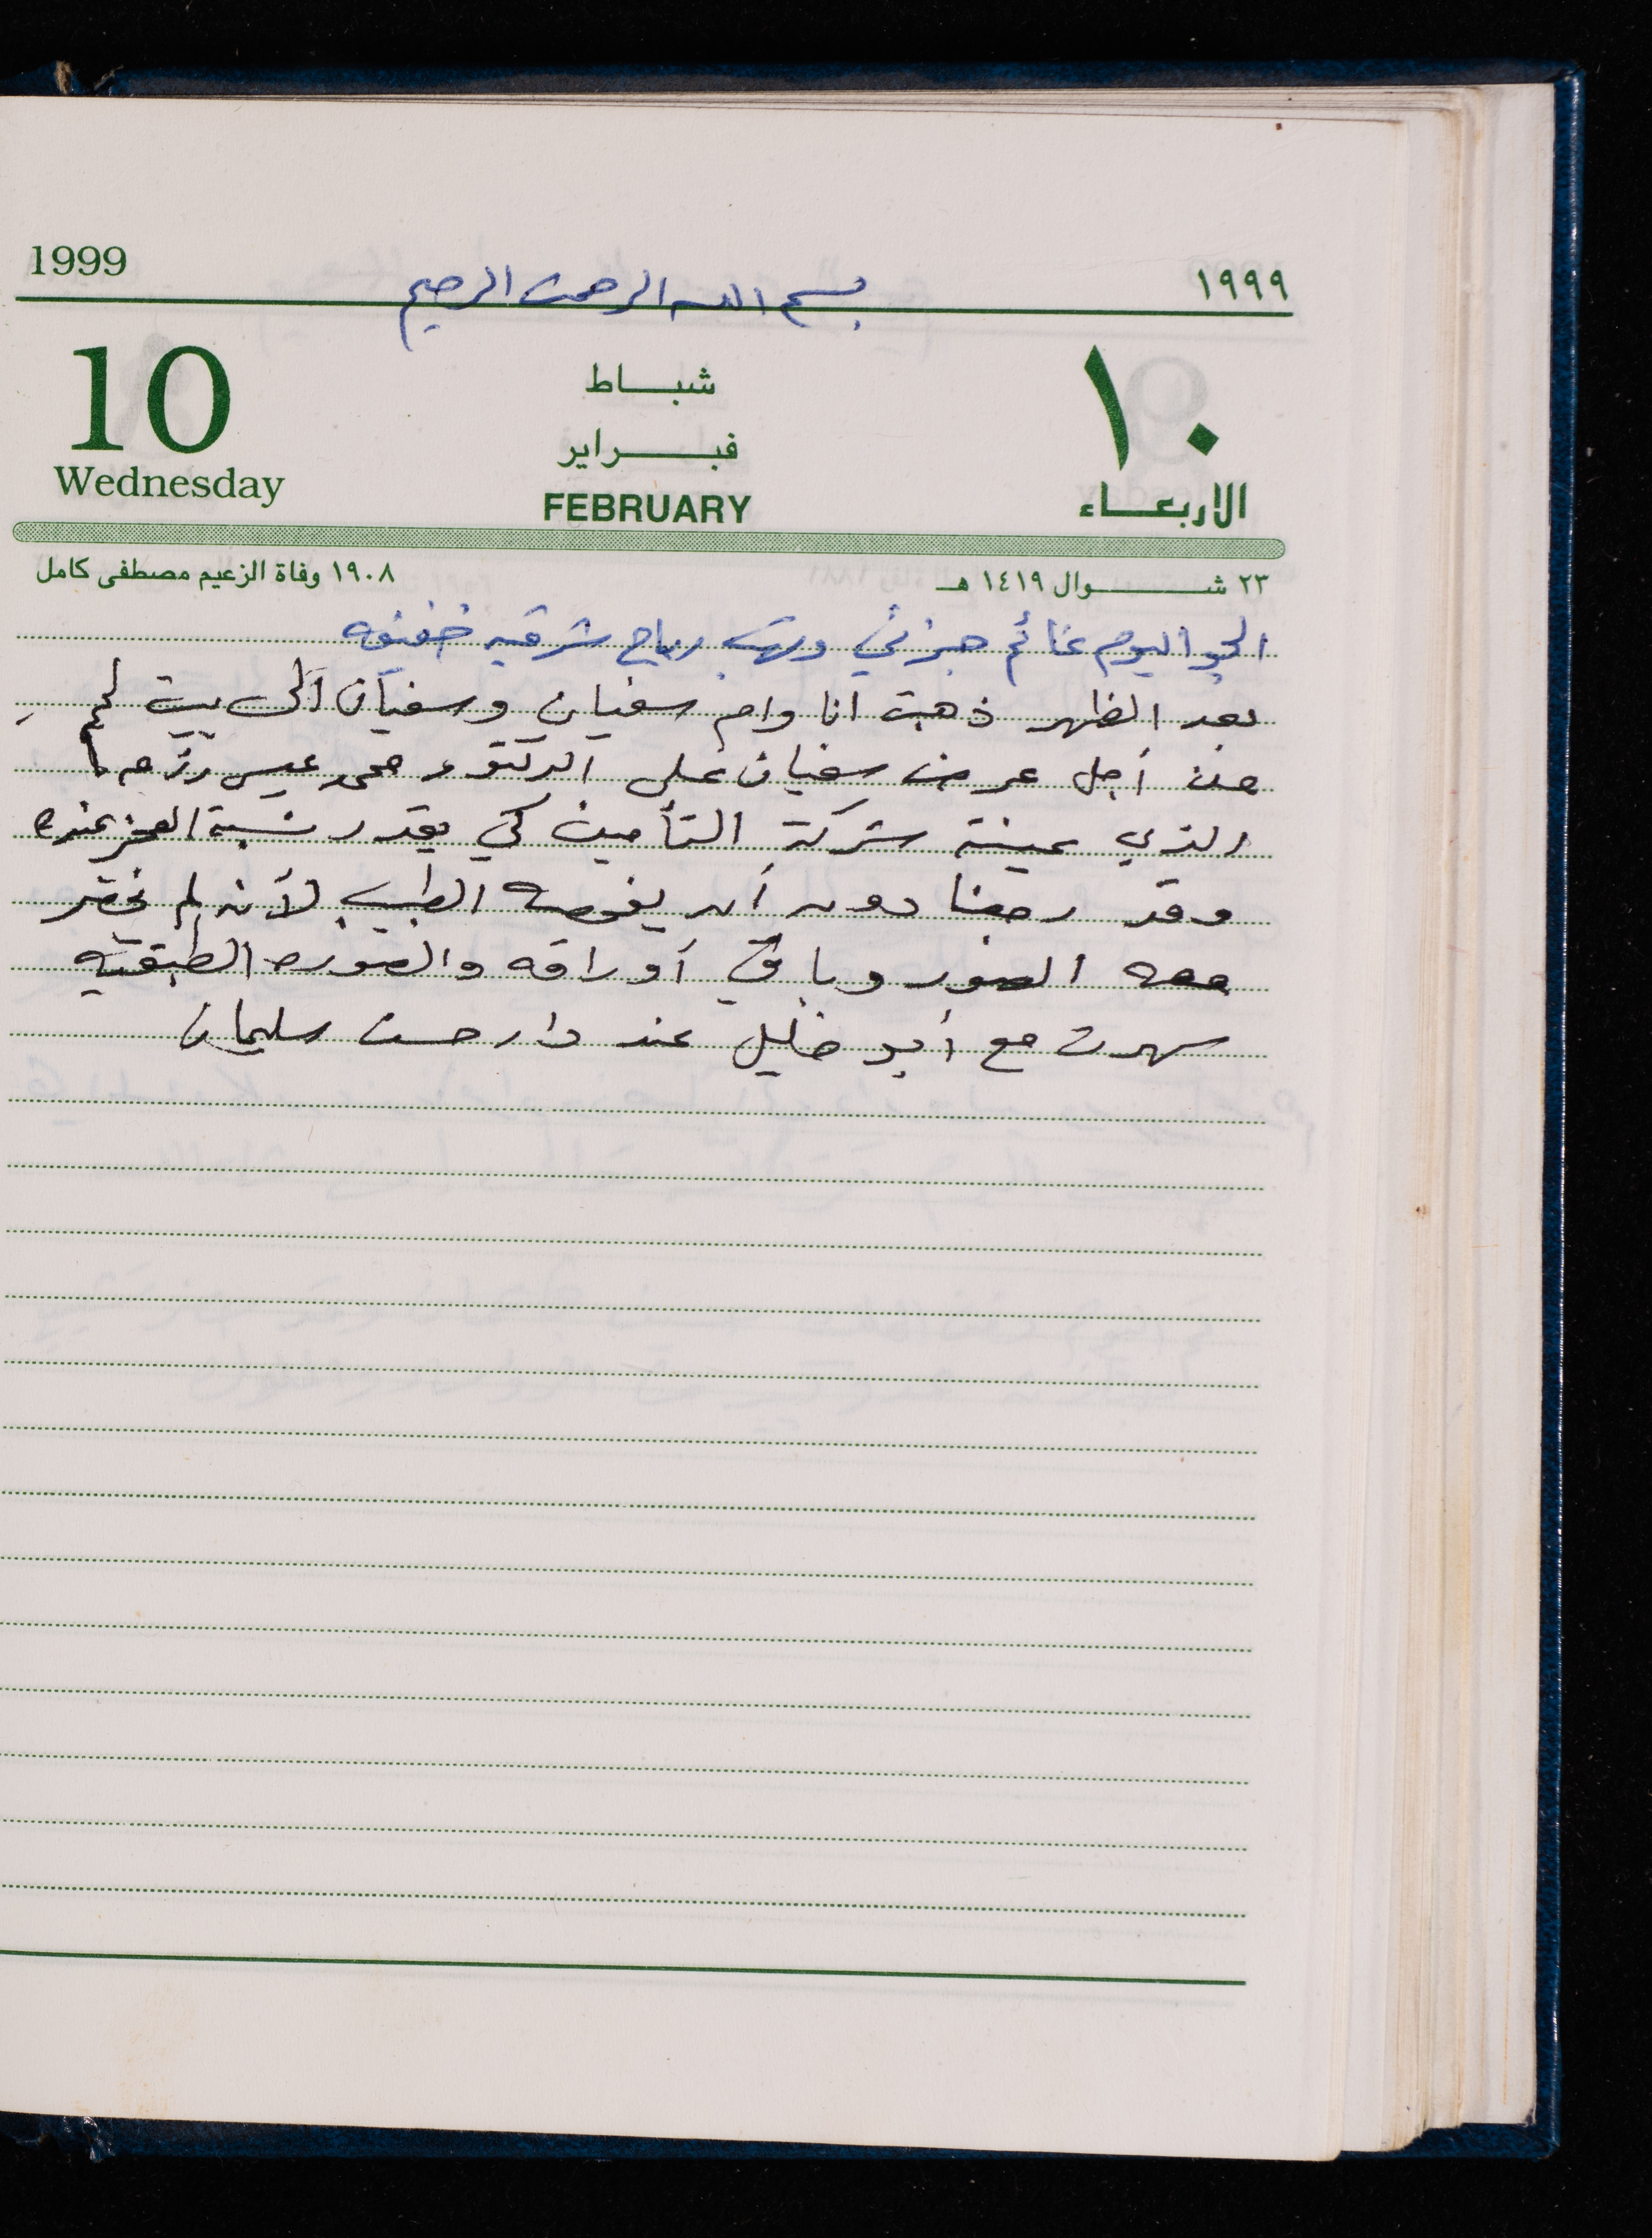 1999 ١٩٩٩
بسم الله الرحمن الرحيم
10 شباط ١٠
فبراير
Wednesday FEBRUARY الاربعاء
٢٣ شوال ١٤١٩ هـ ١٩٠٨ وفاة الزعيم مصطفى كامل
الجو اليوم غائم جزئي وتهب رياح شرقيه خفيفه
بعد الظهر ذهبت انا وام سفيان وسفيان الى بيت لحم
من أجل عرض سفيان على الدكتور محمد عيسى
الذي عينته شركة التأمين كي يقدر نسبة العجز عنده
وقد رجعنا دون أن يفحصه الطبيب لأنه لم نحضر
معه الصور وباقي أوراقه والصوره الطبقيه
سهرت مع أبو خليل عند دار حسن سليمان